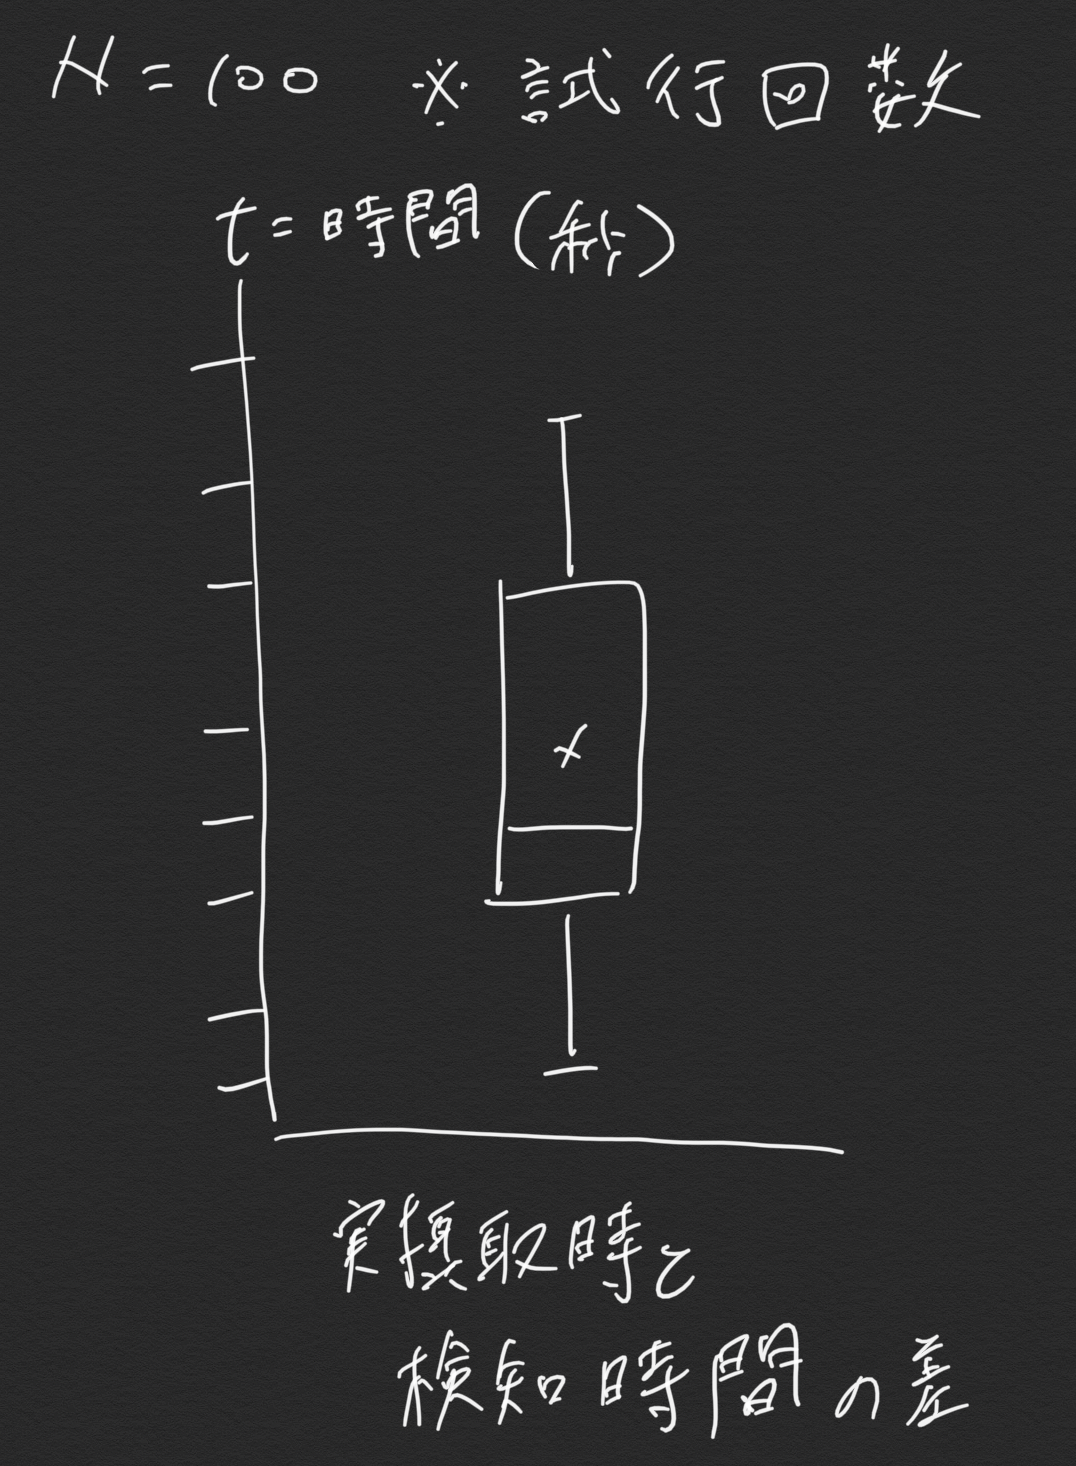 N=100 ※試行回数
t=時間(秒)
実摂取時と
検知時間の差